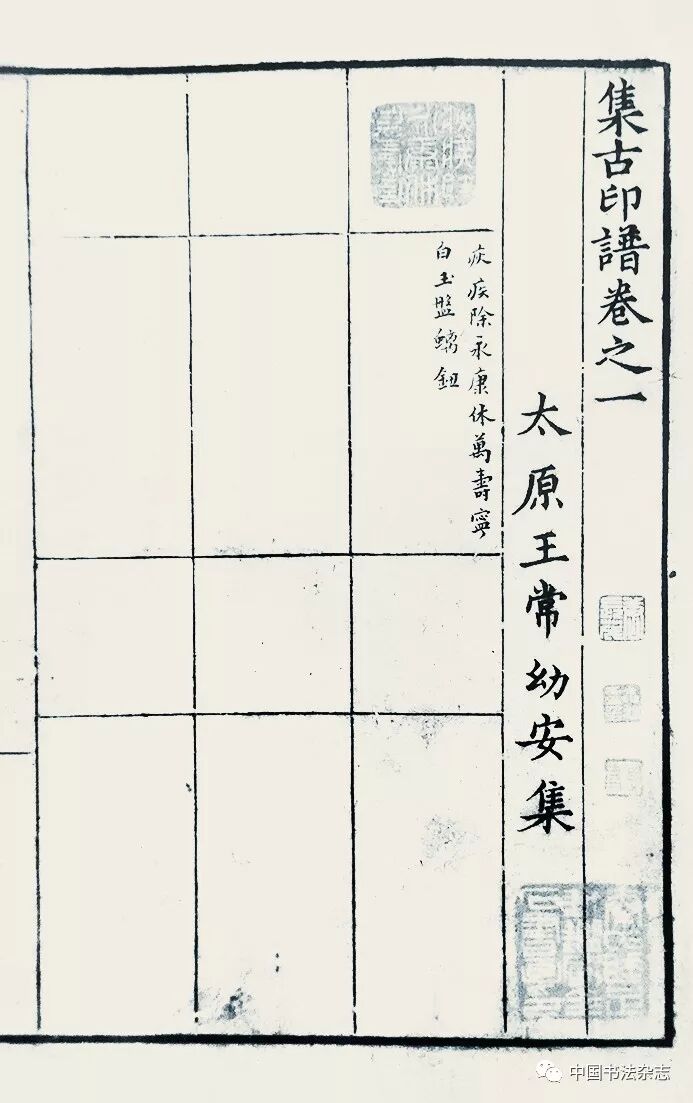 集古印譜卷之一
太原王常幼安集
疢疾除永康休萬壽寧
白玉盤螭鈕
中国书法杂志